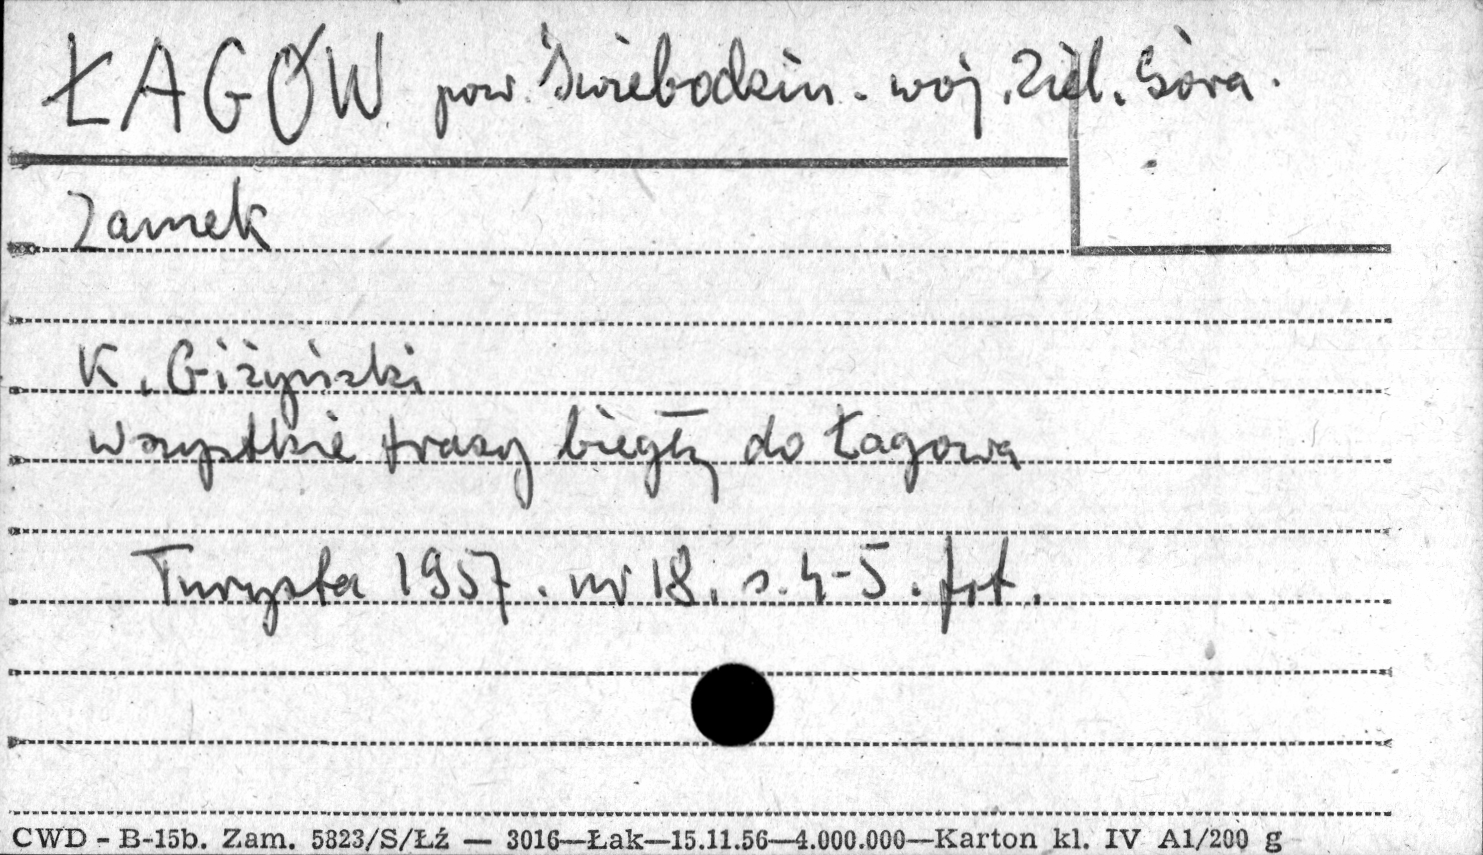 ŁAGÓW pow. Świebodzin. woj. Ziel. Góra.
Zamek
K. Giżyński
Wszystkie trasy biegły do Łagowa
Turysta 1957. nr 18. s. 4-5. fot.
CWD - B-15b. Zam. 5823/S/Łź — 3016—Łak—15.11.56—4.000.000—Karton kl. IV A1/200 g